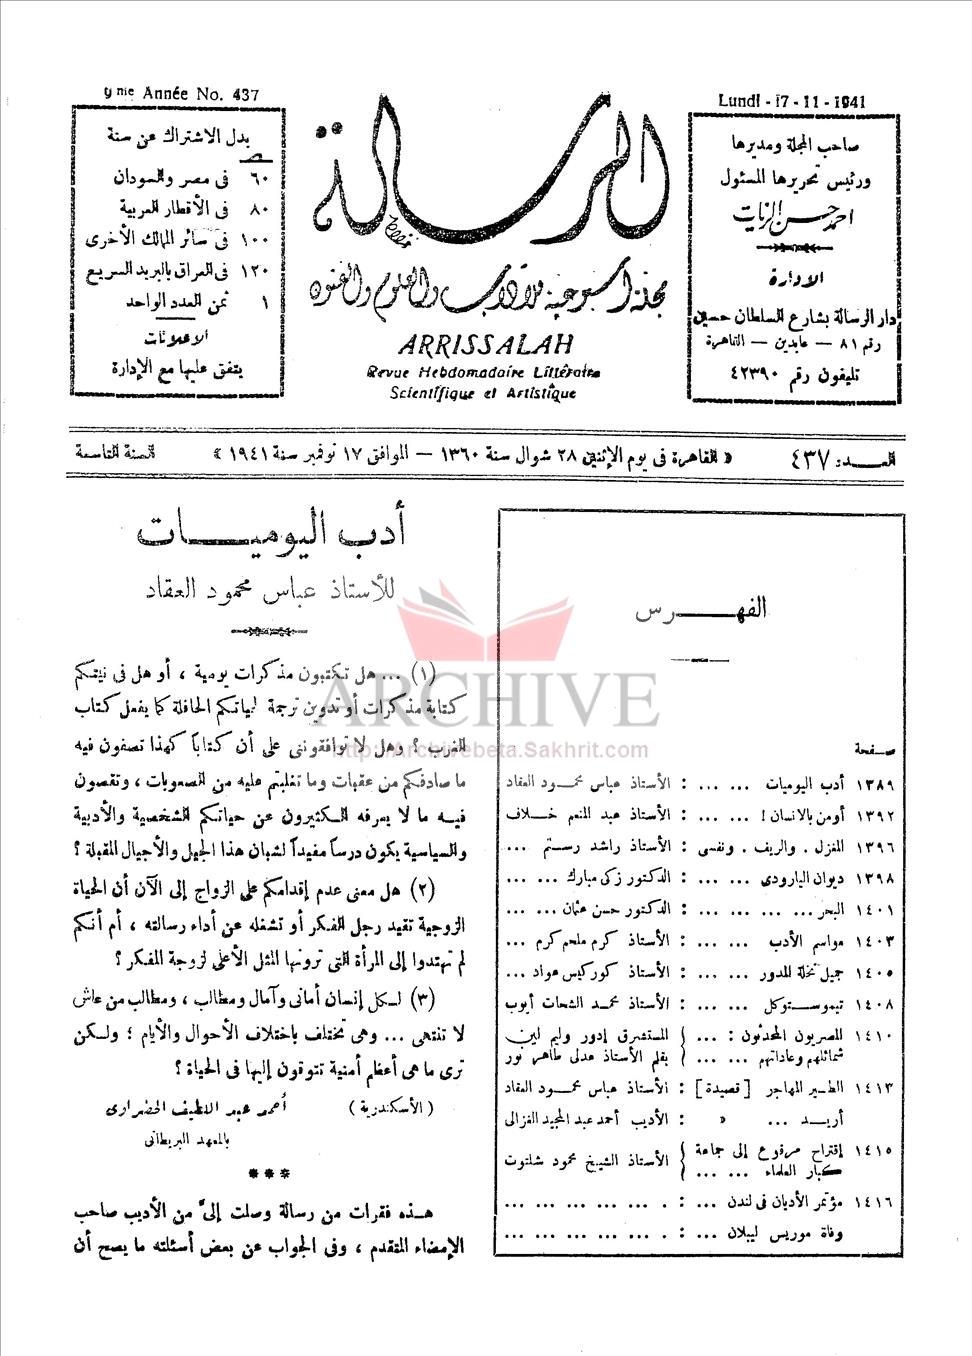 9me Année No. 437
Lundi - 17 - 11 - 1941
صاحب المجلة ومديرها
ورئيس تحريرها المسئول
احمد حسن الزيات
الادارة
دار الرسالة بشارع السلطان حسين
رقم ٨١ — عابدين — القاهرة
تليفون رقم ٤٢٣٩٠
الرسالة
مجلة أسبوعية للآداب والعلوم والفنون
ARRISSALAH
Revue Hebdomadaire Littéraire
Scientifique et Artistique
بدل الاشتراك عن سنة
٦٠ فى مصر والسودان
٨٠ فى الأقطار العربية
١٠٠ فى سائر الممالك الأخرى
١٢٠ فى العراق بالبريد السريع
١ ثمن العدد الواحد
الاعلانات
يتفق عليها مع الإدارة
العـدد: ٤٣٧ « القاهرة فى يوم الإثنين ٢٨ شوال سنة ١٣٦٠ — الموافق ١٧ نوفمبر سنة ١٩٤١ » السنة التاسعة
الفهـرس
صفحة
١٣٨٩ أدب اليوميات ... ... : الأستاذ عباس محمود العقاد
١٣٩٢ أومن بالانسان ! ... ... : الأستاذ عبد المنعم خلاف
١٣٩٦ المغزل . والريف . ونفسى : الأستاذ راشد رستم ...
١٣٩٨ ديوان البارودى ... ... : الدكتور زكى مبارك ... ...
١٤٠١ البحر ... ... ... ... : الدكتور حسن عثمان ... ...
١٤٠٣ مواسم الأدب ... ... : الأستاذ كرم ملحم كرم ...
١٤٠٥ جميل نخلة المدور ... ... : الأستاذ كوركيس عواد ...
١٤٠٨ تيموستوكل ... ... : الأستاذ محمد الشحات أيوب
١٤١٠ المصريون المحدثون : ... { المستشرق إدور وليم لين
شمائلهم وعاداتهم ... ... { بقلم الأستاذ عدلى طاهر نور
١٤١٣ الطير المهاجر [قصيدة] : الأستاذ عباس محمود العقاد
أريد ... ... » : الأديب أحمد عبد المجيد الغزالى
١٤١٥ إقتراح مرفوع إلى جماعة
كبار العلماء ... ... { الأستاذ الشيخ محمود شلتوت
١٤١٦ مؤتمر الأديان فى لندن ... : ... ... ... ... ...
وفاة موريس ليبلان ... : ... ... ... ... ...
أدب اليوميـات
للأستاذ عباس محمود العقاد
(١) ... هل تكتبون مذكرات يومية ، أو هل فى نيتكم
كتابة مذكرات أو تدوين ترجمة لحياتكم الحافلة كما يفعل كتاب
الغرب ؟ وهل لا توافقوننى على أن كتاباً كهذا تصفون فيه
ما صادفكم من عقبات وما تغلبتم عليه من الصعوبات ، وتقصون
فيه ما لا يعرفه الكثيرون عن حياتكم الشخصية والأدبية
والسياسية يكون درساً مفيداً لشبان هذا الجيل والأجيال المقبلة ؟
(٢) هل معنى عدم إقدامكم على الزواج إلى الآن أن الحياة
الزوجية تقيد رجل الفكر أو تشغله عن أداء رسالته ، أم أنكم
لم تهتدوا إلى المرأة التى ترونها المثل الأعلى لزوجة المفكر ؟
(٣) لكل إنسان أمانى وآمال ومطالب ، ومطالب من عاش
لا تنتهى ... وهى تختلف باختلاف الأحوال والأيام ؛ ولكن
ترى ما هى أعظم أمنية تتوقون إليها فى الحياة ؟
(الأسكندرية) أحمد عبد اللطيف الحضرارى
بالمعهد البريطانى
***
هـذه فقرات من رسالة وصلت إلىَّ من الأديب صاحب
الإمضاء المتقدم ، وفى الجواب عن بعض أسئلته ما يصح أن
ARCHIVE
http://Archivebeta.Sakhrit.com